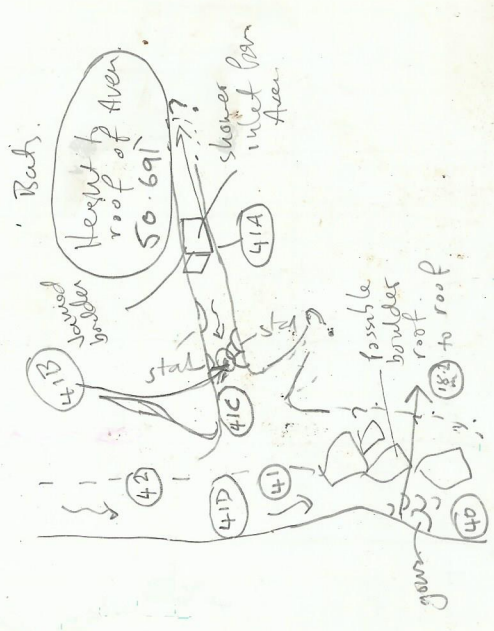 Bats.
Height to
roof of Aven
50.691
!?
shower
inlet from
Aven
Jammed
boulder
41B
41A
stal
stal
41C
?
42
41D
41
?
Possible
boulder
roof.
to roof
?
40